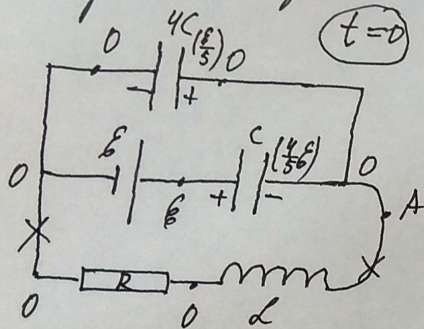 t=0
0 4C (ℰ/5) 0
- +
ℰ C (4/5 ℰ)
0 ℰ + - 0
A
R
0 0 L